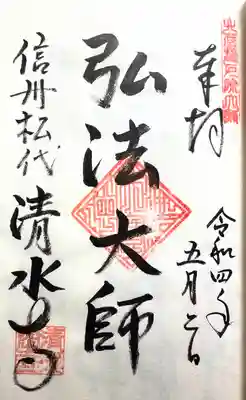 奉拝
令和四年
五月二日
弘法大師
信州松代
清水寺